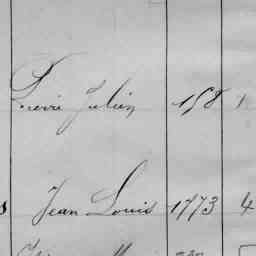 Pierre Julien 158 1
s Jean Louis 1773 4